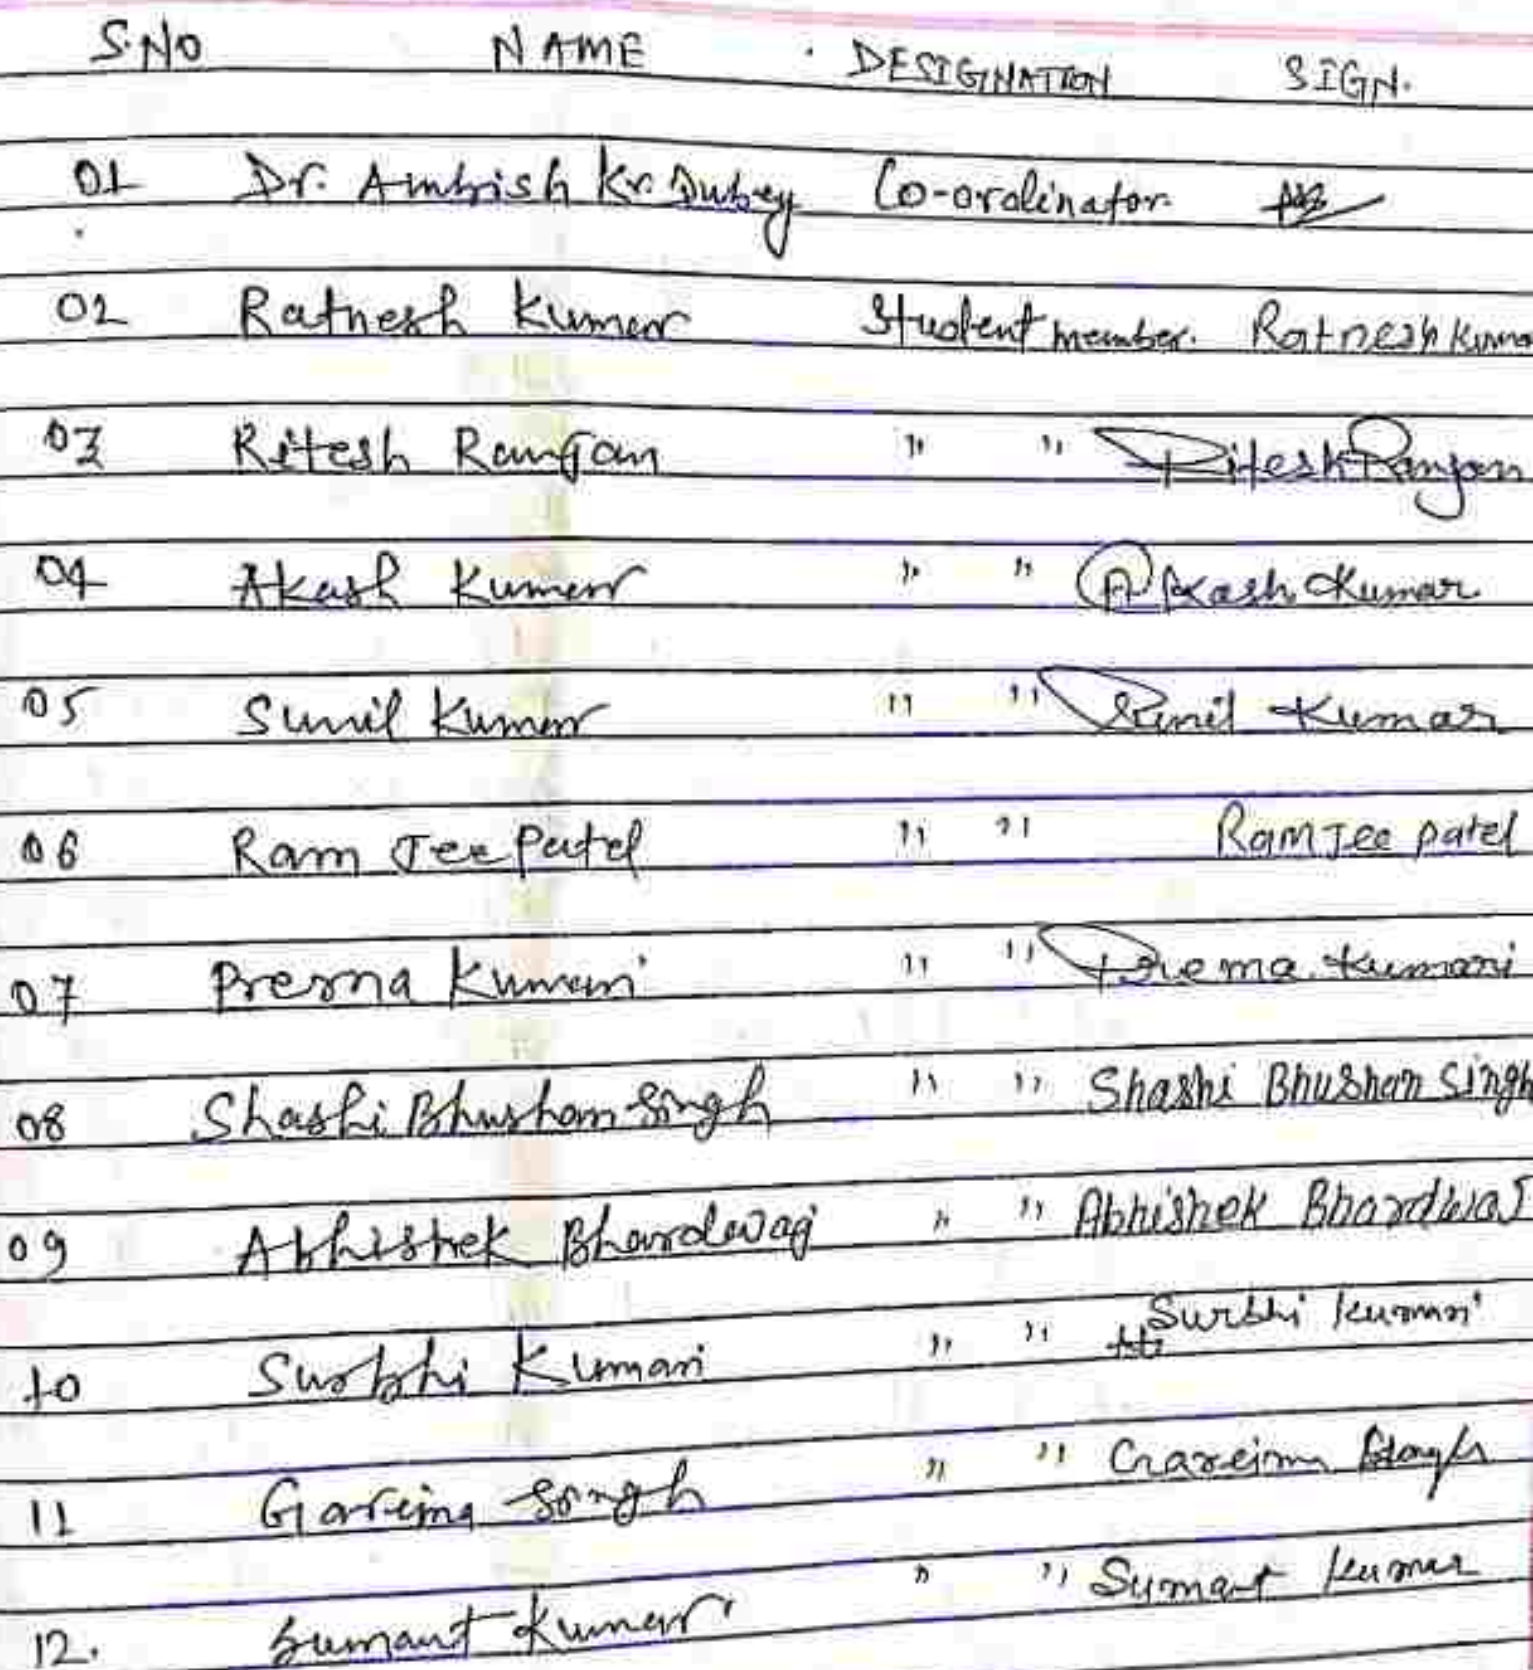 S.NO NAME DESIGINATION SIGN.
01 Dr. Ambrish Kr. Dubey Co-ordinator
02 Ratnesh Kumar Student member. Ratnesh Kumar
03 Ritesh Ranjan " " Ritesh Ranjan
04 Akash Kumar " " Akash Kumar
05 Sunil Kumar " " Sunil Kumar
06 Ram Jee Patel " " Ram Jee patel
07 Prerna Kumari " " Prerna Kumari
08 Shashi Bhushan Singh " " Shashi Bhushan Singh
09 Abhishek Bhardwaj " " Abhishek Bhardwaj
10 Surbhi Kumari " " Surbhi kumari
11 Gareima Singh " " Gareima Singh
12. Sumant Kumar " " Sumant kumar